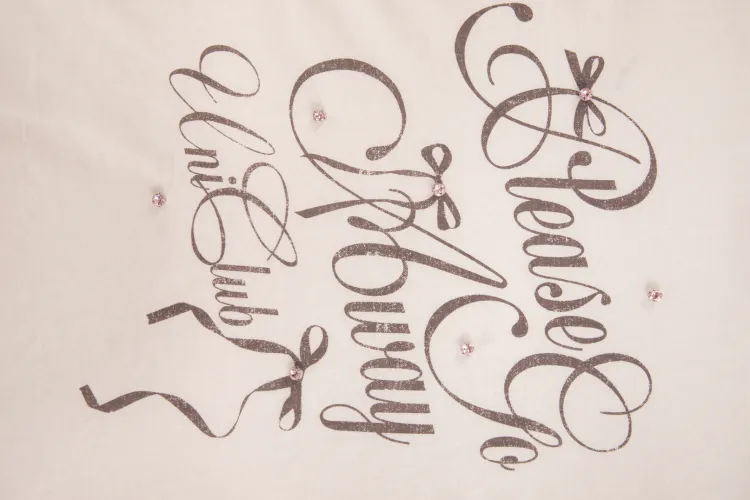 Please Go
Away
Uni Club